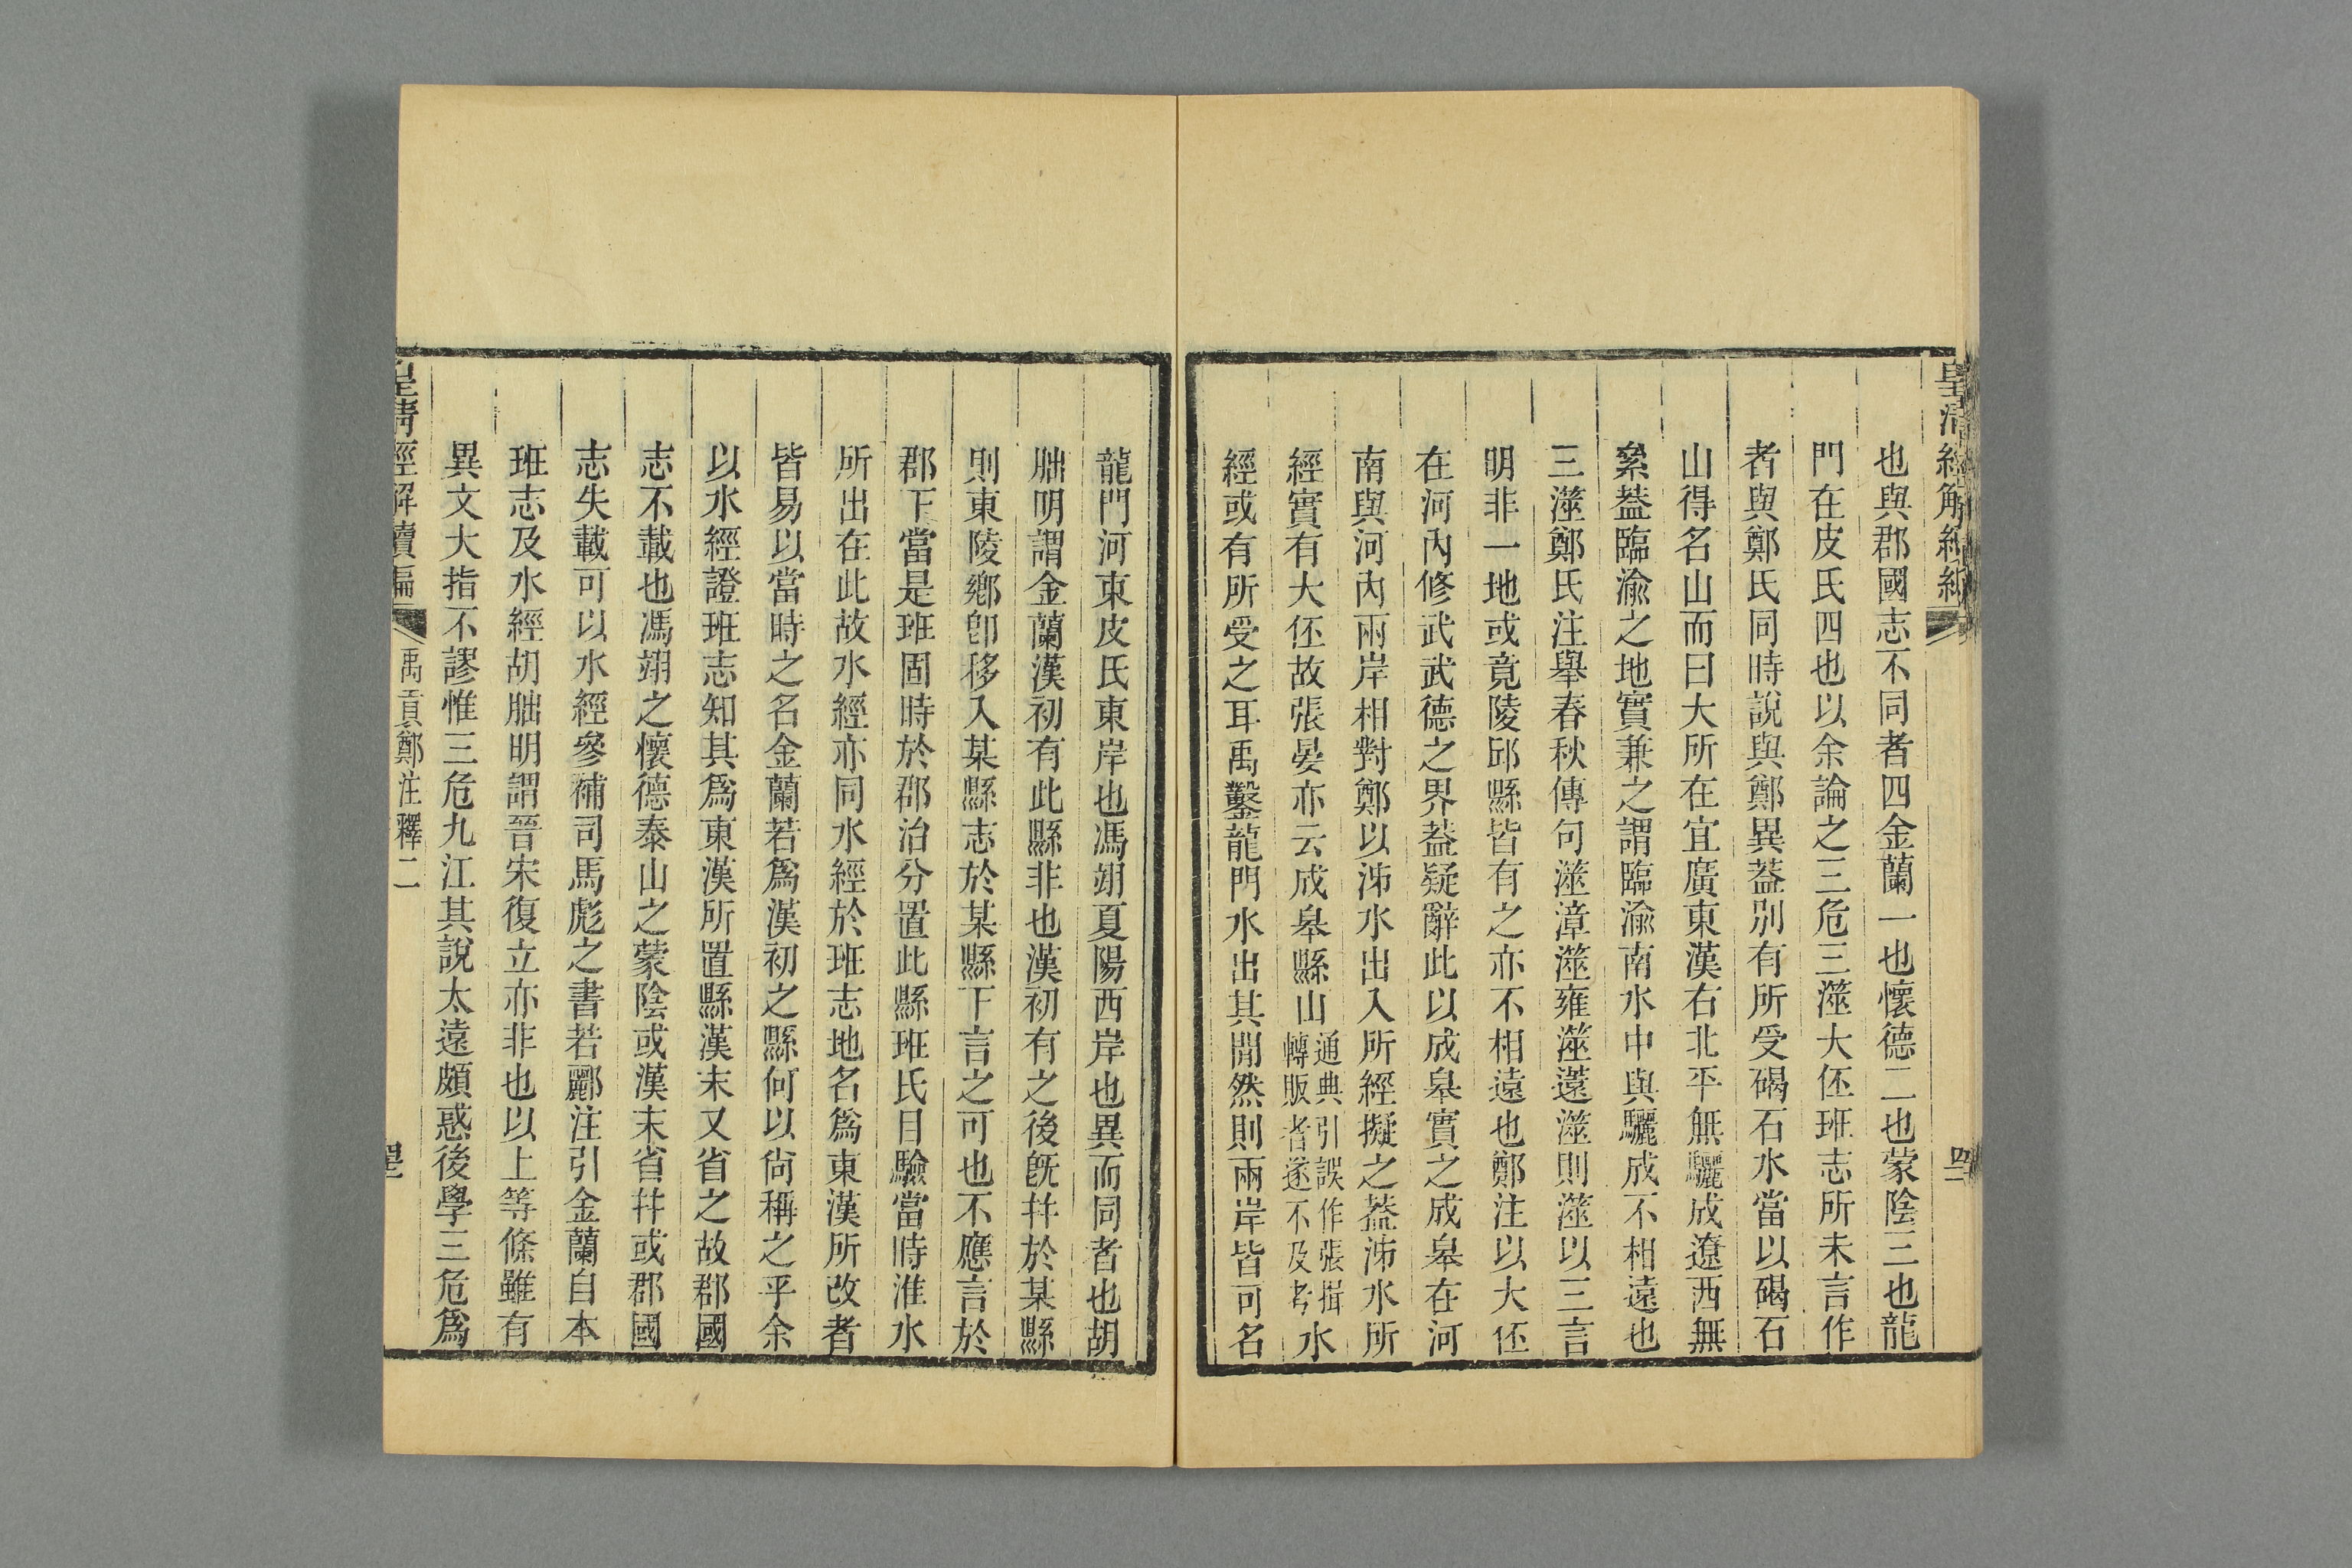 也與郡國志不同者四金蘭一也懷德二也蒙陰三也龍
門在皮氏四也以余論之三危三澨大伾班志所未言作
者與鄭氏同時說與鄭異葢別有所受碣石水當以碣石
山得名山而曰大所在宜廣東漢右北平無驪成遼西無
絫葢臨渝之地實兼之謂臨渝南水中與驪成不相遠也
三澨鄭氏注舉春秋傳句澨漳澨雍澨薳澨則澨以三言
明非一地或竟陵邱縣皆有之亦不相遠也鄭注以大伾
在河內修武武德之界葢疑辭此以成皋實之成皋在河
南與河內兩岸相對鄭以沛水出入所經擬之葢沛水所
經實有大伾故張晏亦云成皋縣山通典引誤作張揖轉販者遂不及考水
經或有所受之耳禹鑿龍門水出其閒然則兩岸皆可名
龍門河東皮氏東岸也馮翊夏陽西岸也異而同者也胡
朏明謂金蘭漢初有此縣非也漢初有之後旣幷於某縣
則東陵鄉卽移入某縣志於某縣下言之可也不應言於
郡下當是班固時於郡治分置此縣班氏目驗當時淮水
所出在此故水經亦同水經於班志地名爲東漢所改者
皆易以當時之名金蘭若爲漢初之縣何以尙稱之乎余
以水經證班志知其爲東漢所置縣漢末又省之故郡國
志不載也馮翊之懷德泰山之蒙陰或漢末省幷或郡國
志失載可以水經參補司馬彪之書若酈注引金蘭自本
班志及水經胡朏明謂晉宋復立亦非也以上等條雖有
異文大指不謬惟三危九江其說太遠頗惑後學三危爲
皇清經解續編
禹貢鄭注釋二